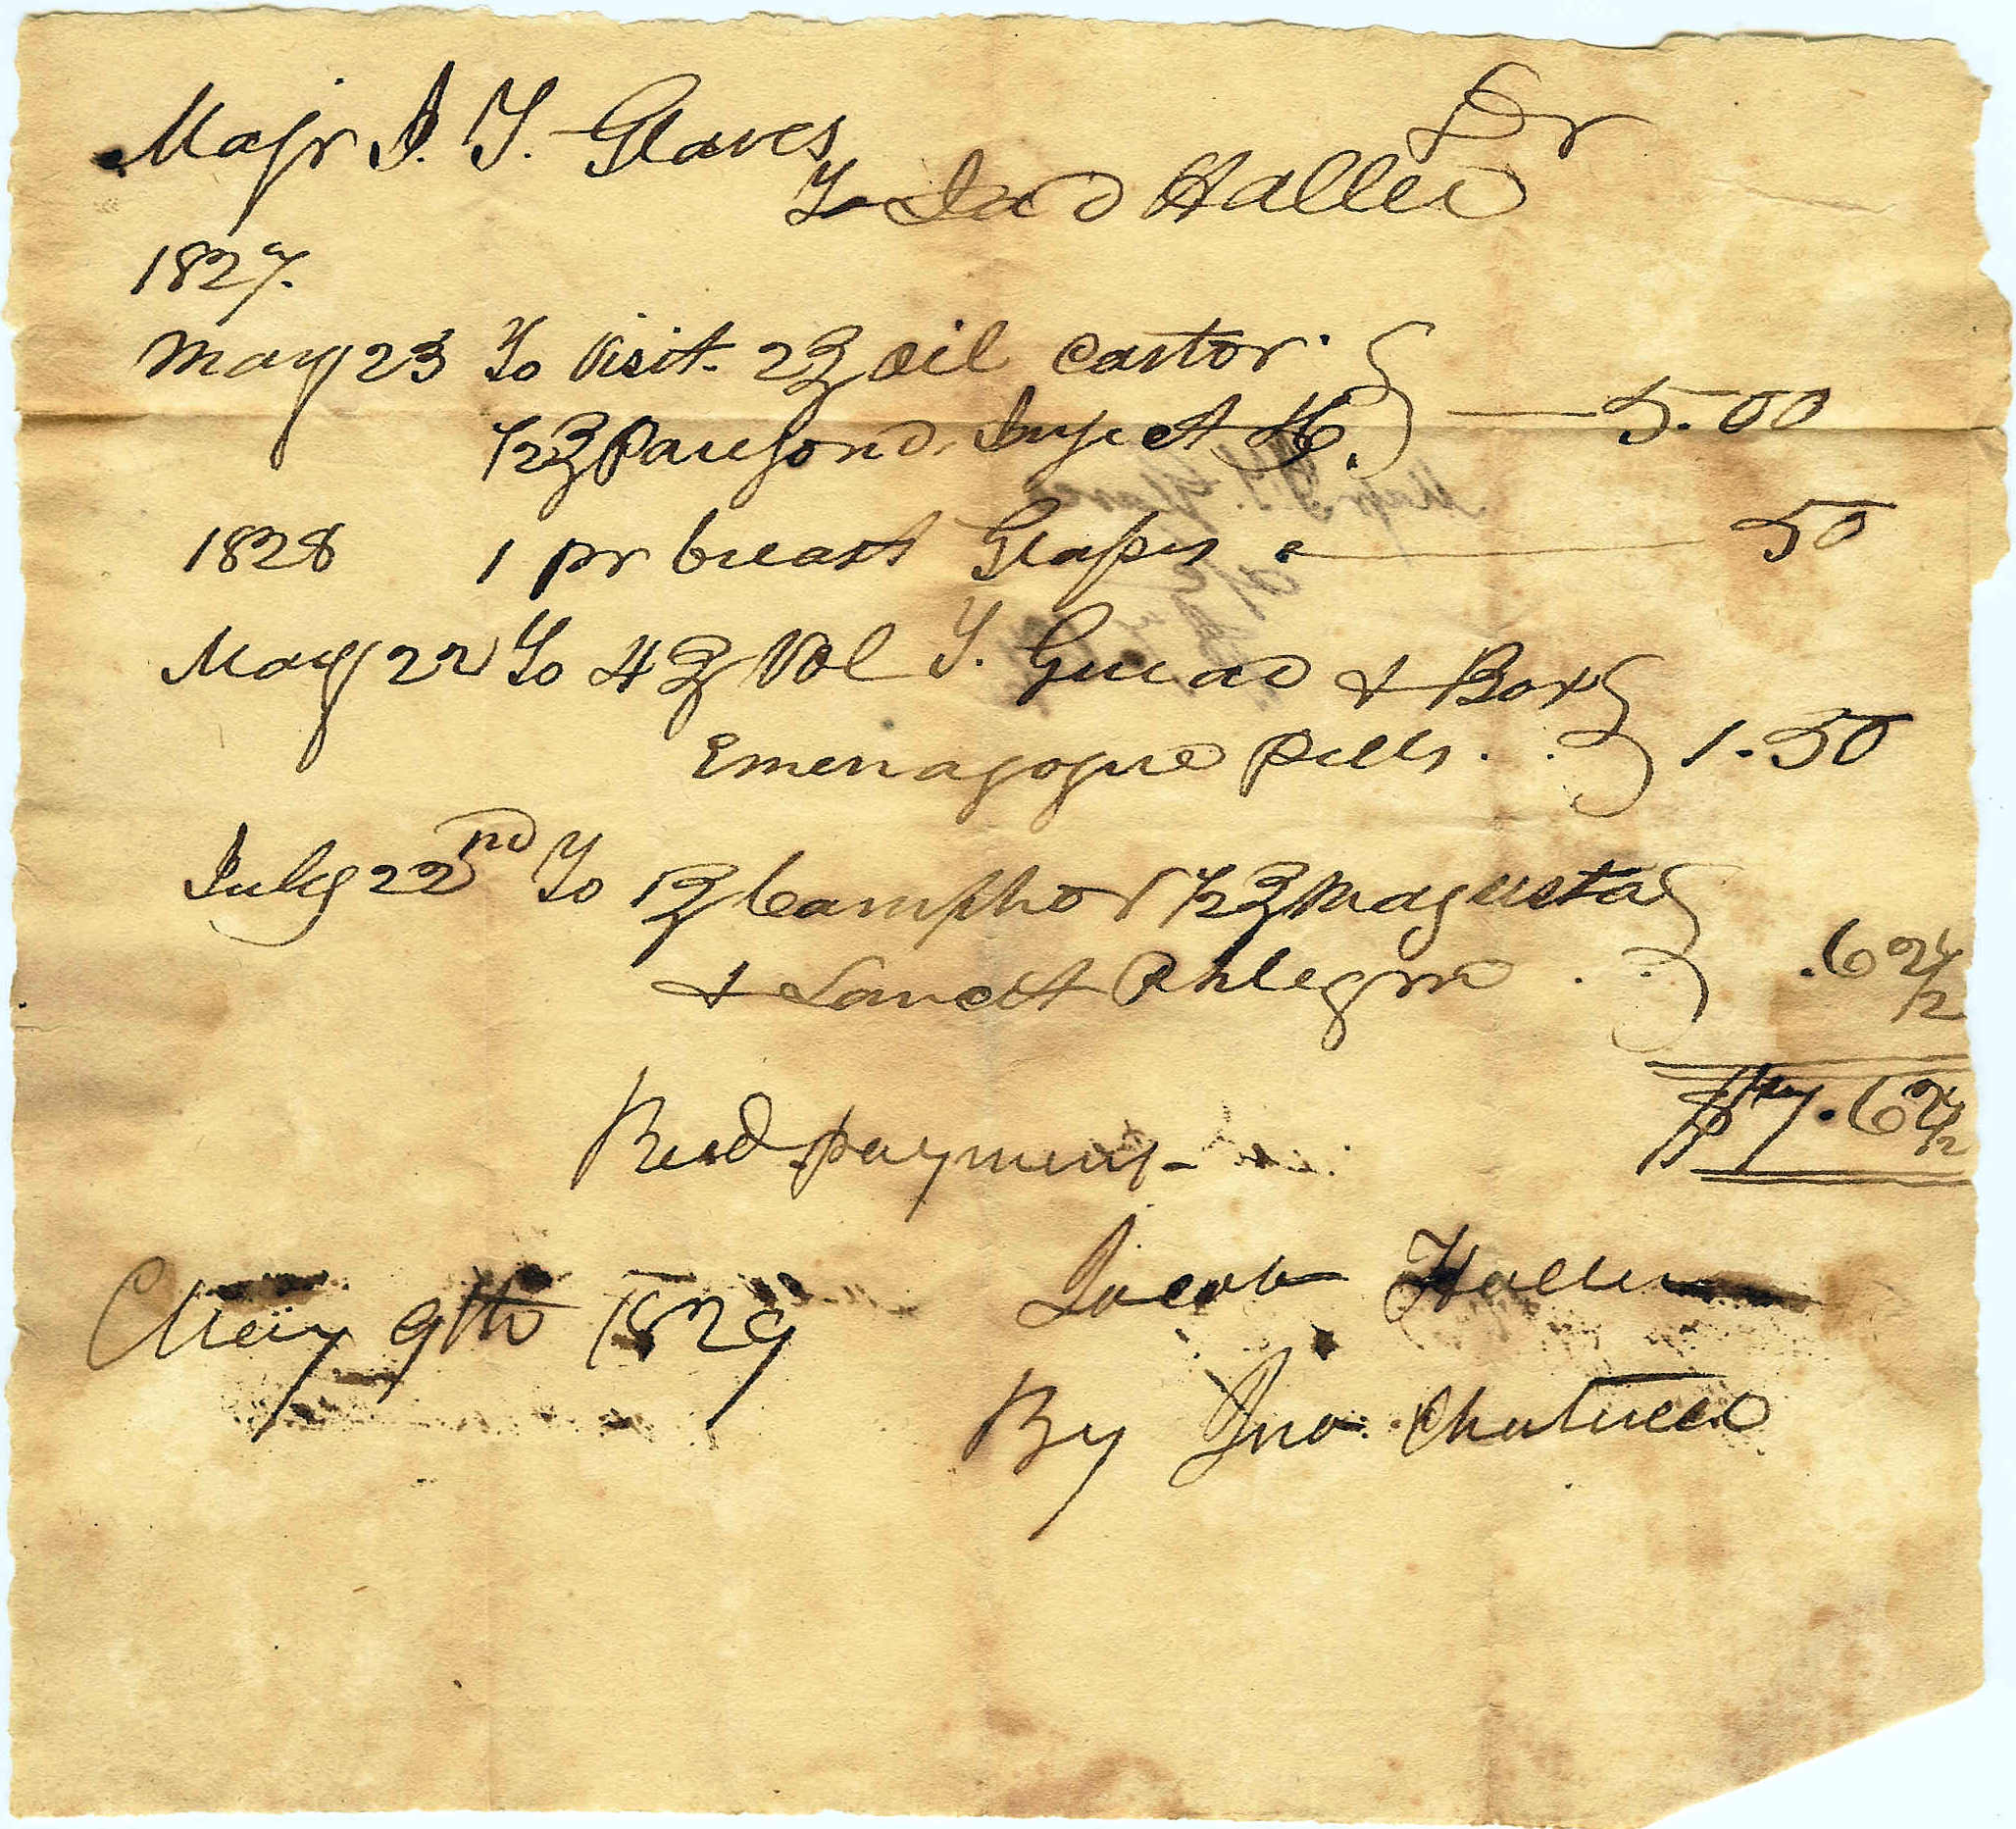 Majr I. T. Glaves Dr
To Haller
1827.
May 23 To Visit. 2℥ Oil Castor.
1/2℥ 5.00
1828 1 pr breast Glasses 50
May 22 To 4℥ Vol T. Guiac & Box
Emenagogue Pills . . 1.50
July 22nd To 1℥ Camphor 1/2℥ Magnesia
& Phlegm . . .62 1/2
$7.62 1/2
Recd payment
May 9th 1829 Jacob Haller
By Jno.